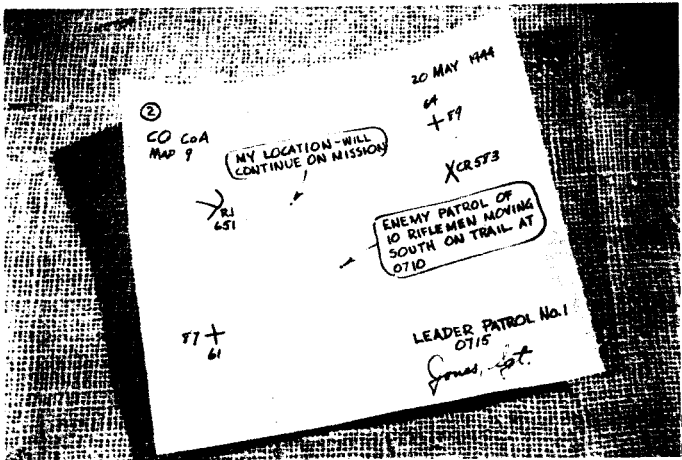 ②
CO CoA
MAP 9
20 MAY 1944
64
89
MY LOCATION-WILL
CONTINUE ON MISSION
RJ
651
CR 583
ENEMY PATROL OF
10 RIFLEMEN MOVING
SOUTH ON TRAIL AT
0710
87
61
LEADER PATROL No. 1
0715
Jones, Sgt.